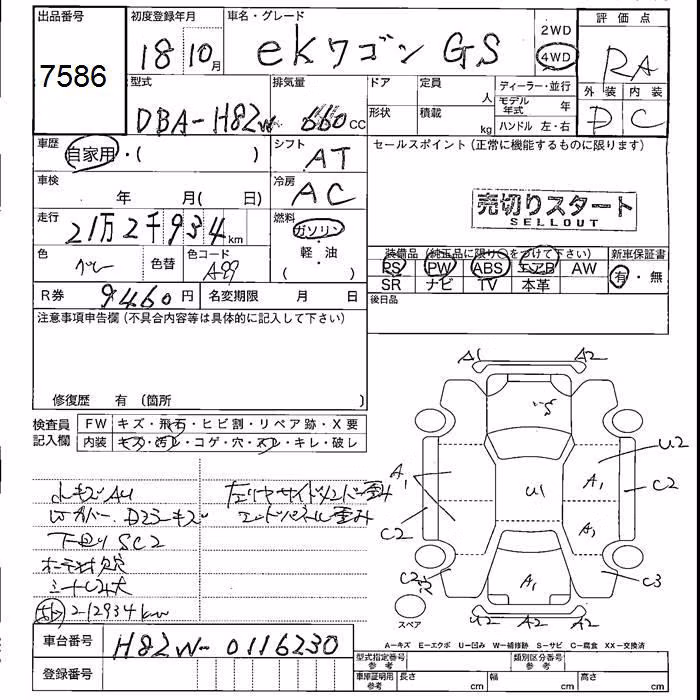 出品番号
7586
初度登録年月
18 10月
車名・グレード
ekワゴン GS
2WD
4WD
評価点
RA
外装 内装
D C
型式
DBA-H82W
排気量
660cc
ドア
定員
人
形状
積載
kg
ディーラー・並行
モデル年式 年
ハンドル 左・右
車歴
自家用・( )
シフト
AT
セールスポイント(正常に機能するものに限ります)
車検
年 月( 日)
冷房
AC
売切りスタート
SELLOUT
走行
21万2千934km
燃料
ガソリン
軽・油
( )
色
グレー
色替
色コード
A99
装備品(純正品に限り○をつけて下さい)
PS PW ABS エアB AW
SR ナビ TV 本革
新車保証書
有・無
R券
9460円
名変期限 月 日
後日品
注意事項申告欄(不具合内容等は具体的に記入して下さい)
修復歴 有(箇所 )
検査員記入欄
FW キズ・飛石・ヒビ割・リペア跡・X要
内装 キズ・汚レ・コゲ・穴・スレ・キレ・破レ
A1 A2
S
U2
A1
U1
A1
C2
C2
A1
C2
A1
C3
スペア
U2 A2 A2
小キズAU
下回りSC2
212934km
車台番号
H82W-0116230
登録番号
A-キズ E-エクボ U-凹み W-補修跡 S-サビ C-腐食 XX-交換済
型式指定番号 参考
類別区分番号 参考
車庫証明用 参考
長さ cm
幅 cm
高さ cm